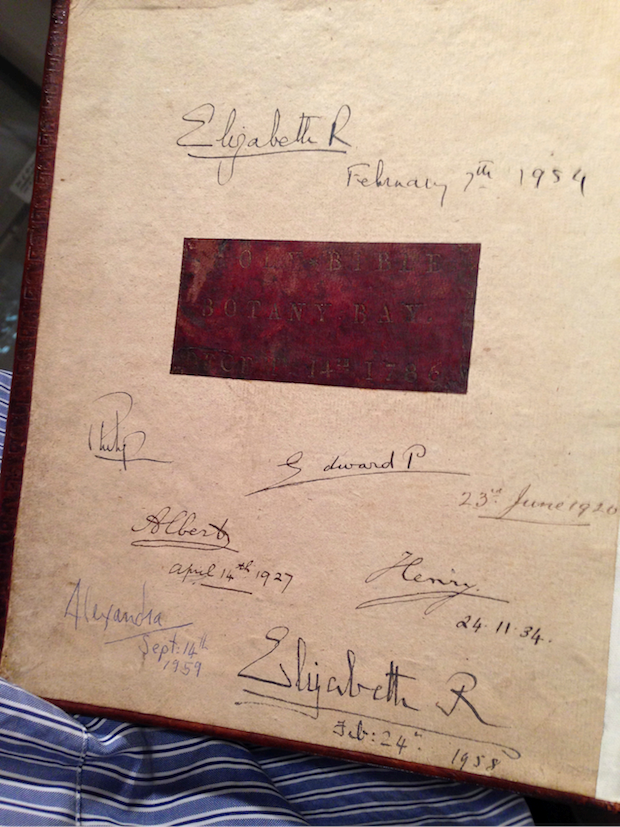 Elizabeth R
February 7th 1954
HOLY BIBLE
BOTANY BAY
14th 1786
Philip
Edward P
23rd June 1920
Albert
April 14th 1927
Henry.
24.11.34.
Alexandra
Sept: 14th
1959
Elizabeth R
Feb: 24th 1958